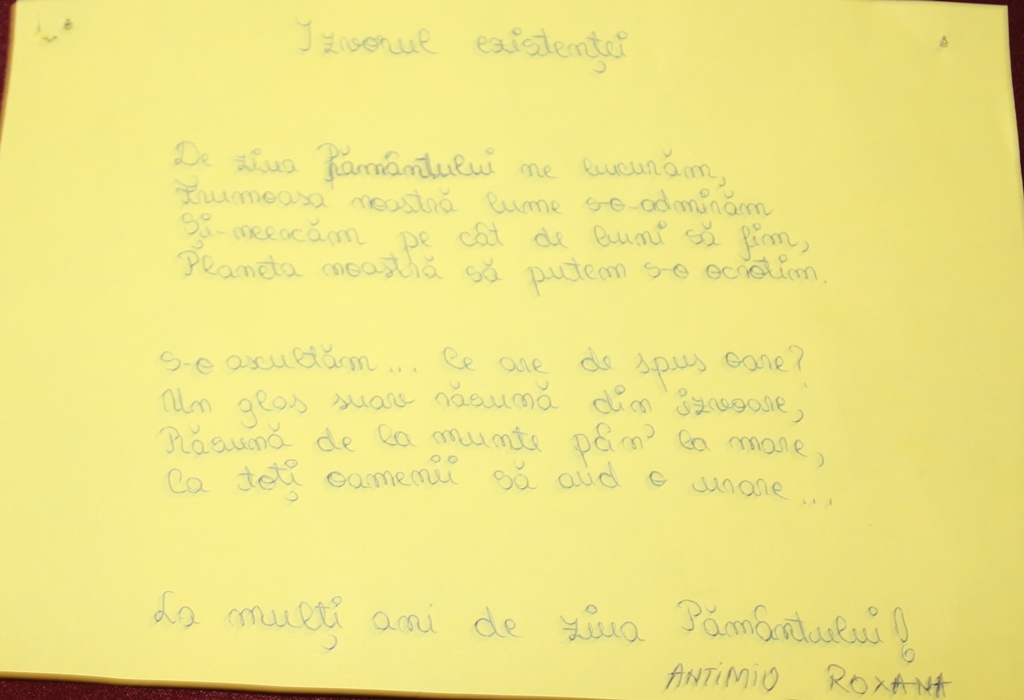 Izvorul existenței
De ziua Pământului ne bucurăm,
Frumoasa noastră lume s-o-admirăm
Și-ncercăm pe cât de buni să fim,
Planeta noastră să putem s-o ocrotim.
S-o ascultăm... Ce are de spus oare?
Un glas suav răsună din izvoare,
Răsună de la munte pân' la mare,
Ca toți oamenii să audă o urare...
La mulți ani de ziua Pământului!
ANTIMIO ROXANA